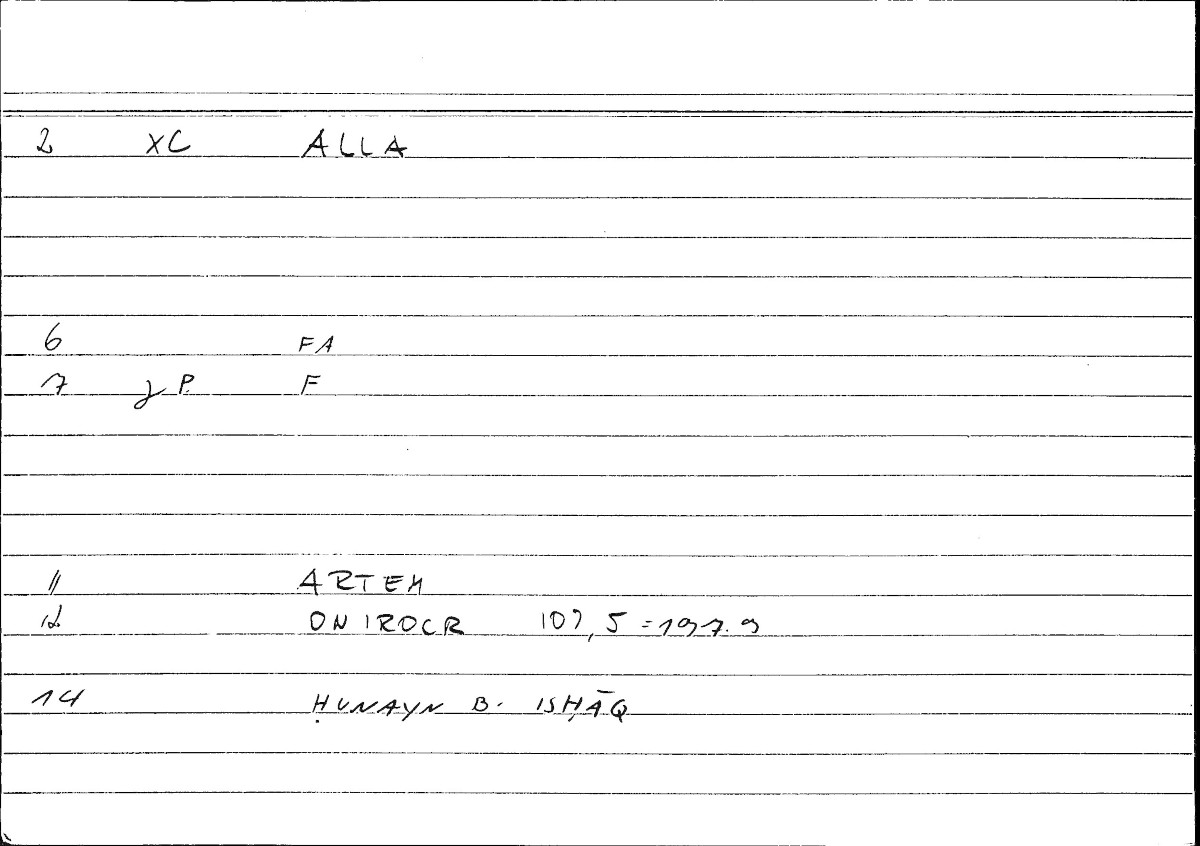 2 XC ALLA
6 FA
7 P. F
11 ARTEM
12 ONIROCR 107,5 = 197.9
14 ḤUNAYN B. ISḤĀQ